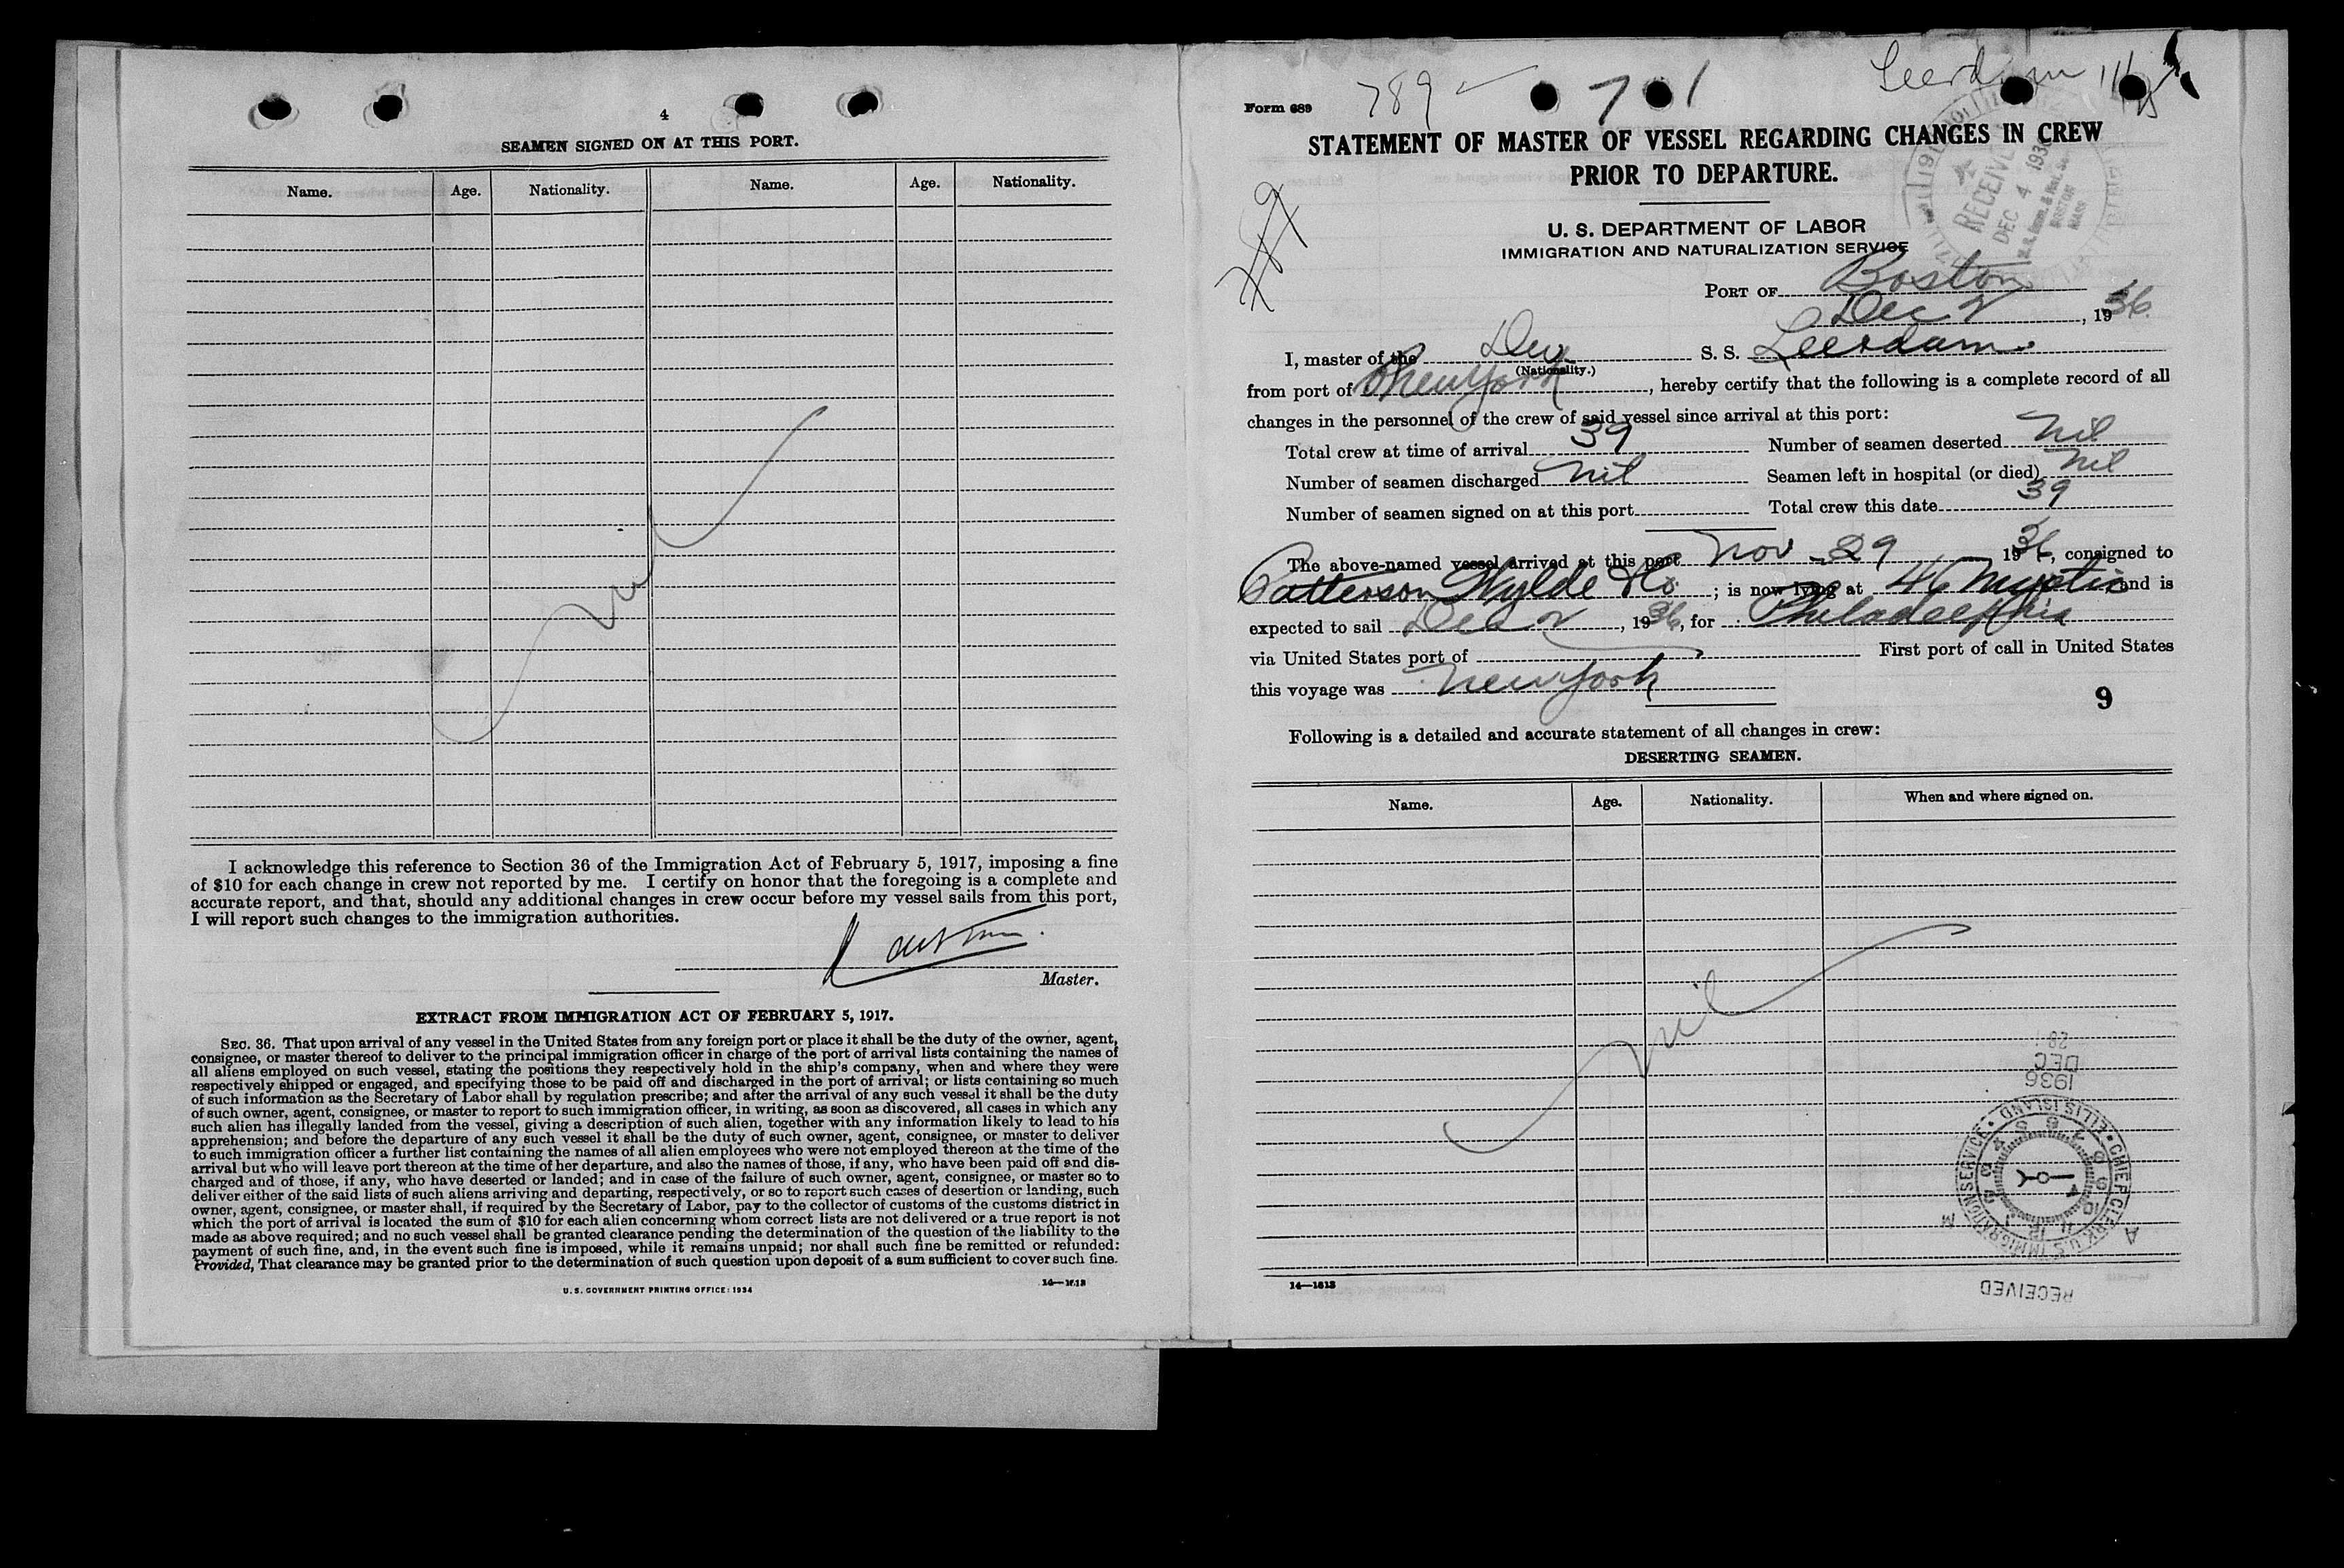 4
SEAMEN SIGNED ON AT THIS PORT.
Name. Age. Nationality. Name. Age. Nationality.
I acknowledge this reference to Section 36 of the Immigration Act of February 5, 1917, imposing a fine
of $10 for each change in crew not reported by me. I certify on honor that the foregoing is a complete and
accurate report, and that, should any additional changes in crew occur before my vessel sails from this port,
I will report such changes to the immigration authorities.
Master.
EXTRACT FROM IMMIGRATION ACT OF FEBRUARY 5, 1917.
SEC. 36. That upon arrival of any vessel in the United States from any foreign port or place it shall be the duty of the owner, agent,
consignee, or master thereof to deliver to the principal immigration officer in charge of the port of arrival lists containing the names of
all aliens employed on such vessel, stating the positions they respectively hold in the ship's company, when and where they were
respectively shipped or engaged, and specifying those to be paid off and discharged in the port of arrival; or lists containing so much
of such information as the Secretary of Labor shall by regulation prescribe; and after the arrival of any such vessel it shall be the duty
of such owner, agent, consignee, or master to report to such immigration officer, in writing, as soon as discovered, all cases in which any
such alien has illegally landed from the vessel, giving a description of such alien, together with any information likely to lead to his
apprehension; and before the departure of any such vessel it shall be the duty of such owner, agent, consignee, or master to deliver
to such immigration officer a further list containing the names of all alien employees who were not employed thereon at the time of the
arrival but who will leave port thereon at the time of her departure, and also the names of those, if any, who have been paid off and dis-
charged and of those, if any, who have deserted or landed; and in case of the failure of such owner, agent, consignee, or master so to
deliver either of the said lists of such aliens arriving and departing, respectively, or so to report such cases of desertion or landing, such
owner, agent, consignee, or master shall, if required by the Secretary of Labor, pay to the collector of customs of the customs district in
which the port of arrival is located the sum of $10 for each alien concerning whom correct lists are not delivered or a true report is not
made as above required; and no such vessel shall be granted clearance pending the determination of the question of the liability to the
payment of such fine, and, in the event such fine is imposed, while it remains unpaid; nor shall such fine be remitted or refunded:
Provided, That clearance may be granted prior to the determination of such question upon deposit of a sum sufficient to cover such fine.
U. S. GOVERNMENT PRINTING OFFICE: 1934
14—1613
Leerdam
Form 689 789 7 1
STATEMENT OF MASTER OF VESSEL REGARDING CHANGES IN CREW
PRIOR TO DEPARTURE.
RECEIVED
DEC 4 1936
BOSTON
MASS
789
U. S. DEPARTMENT OF LABOR
IMMIGRATION AND NATURALIZATION SERVICE
PORT OF Boston
Dec 2, 1936
I, master of the Du S. S. Leerdam
(Nationality.)
from port of New York, hereby certify that the following is a complete record of all
changes in the personnel of the crew of said vessel since arrival at this port:
Total crew at time of arrival 39 Number of seamen deserted nil
Number of seamen discharged nil Seamen left in hospital (or died) nil
Number of seamen signed on at this port Total crew this date 39
The above-named vessel arrived at this port Nov 29 1936, consigned to
Patterson Wylde & Co; is now lying at 46 Mystic and is
expected to sail Dec 2, 1936, for Philadelphia
via United States port of First port of call in United States
this voyage was New York
9
Following is a detailed and accurate statement of all changes in crew:
DESERTING SEAMEN.
Name. Age. Nationality. When and where signed on.
nil
28
DEC
1936
CHIEF CLERK U.S. IMMIGRATION SERVICE • ELLIS ISLAND
A M
RECEIVED
14—1613